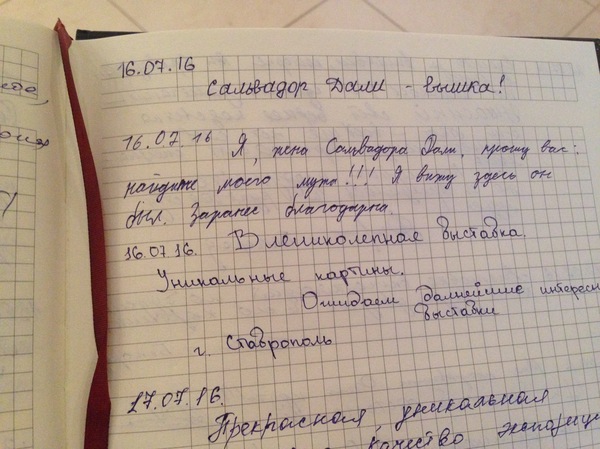 16.07.16
Сальвадор Дали - вышка!
16.07.16 Я, жена Сальвадора Дали, прошу вас:
найдите моего мужа!!! Я вижу здесь он
был. Заранее благодарна
16.07.16. Великолепная выставка.
Уникальные картины.
Ожидаем дальнейшие интересн
выставки
г. Ставрополь
17.07.16.
Прекрасная, уникальная
качество экспозиц